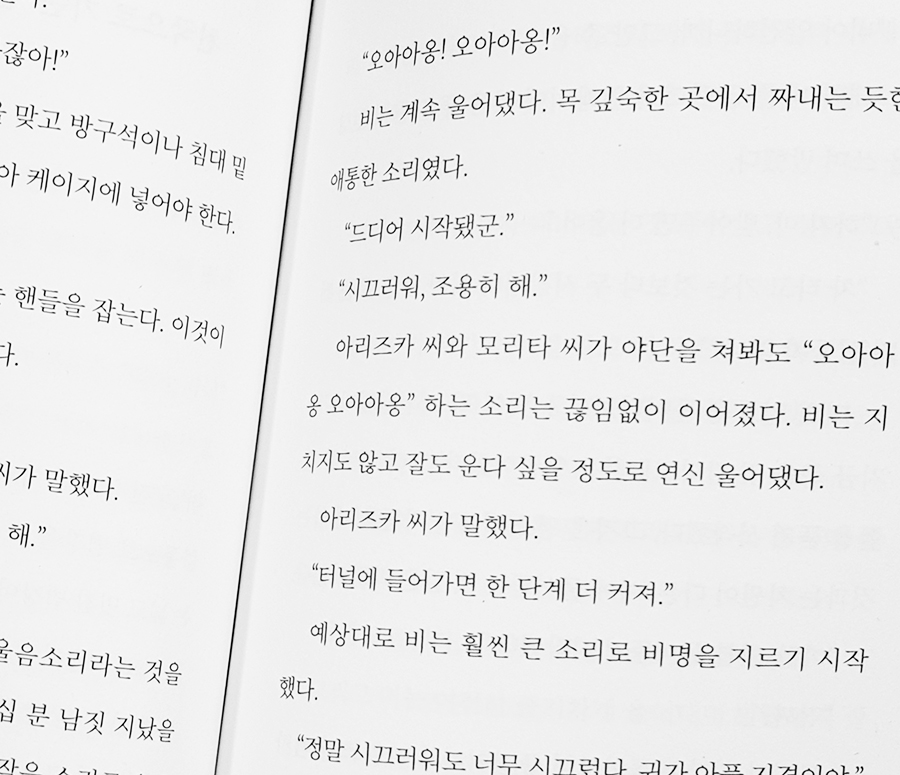 잖아!”
맞고 방구석이나 침대 밑
아 케이지에 넣어야 한다.
핸들을 잡는다. 이것이
다.
씨가 말했다.
해.”
울음소리라는 것을
십 분 남짓 지났을
“오아아옹! 오아아옹!”
비는 계속 울어댔다. 목 깊숙한 곳에서 짜내는 듯한
애통한 소리였다.
“드디어 시작됐군.”
“시끄러워, 조용히 해.”
아리즈카 씨와 모리타 씨가 야단을 쳐봐도 “오아아
옹 오아아옹” 하는 소리는 끊임없이 이어졌다. 비는 지
치지도 않고 잘도 운다 싶을 정도로 연신 울어댔다.
아리즈카 씨가 말했다.
“터널에 들어가면 한 단계 더 커져.”
예상대로 비는 훨씬 큰 소리로 비명을 지르기 시작
했다.
“정말 시끄러워도 너무 시끄럽다. 귀가 아플 지경이야.”